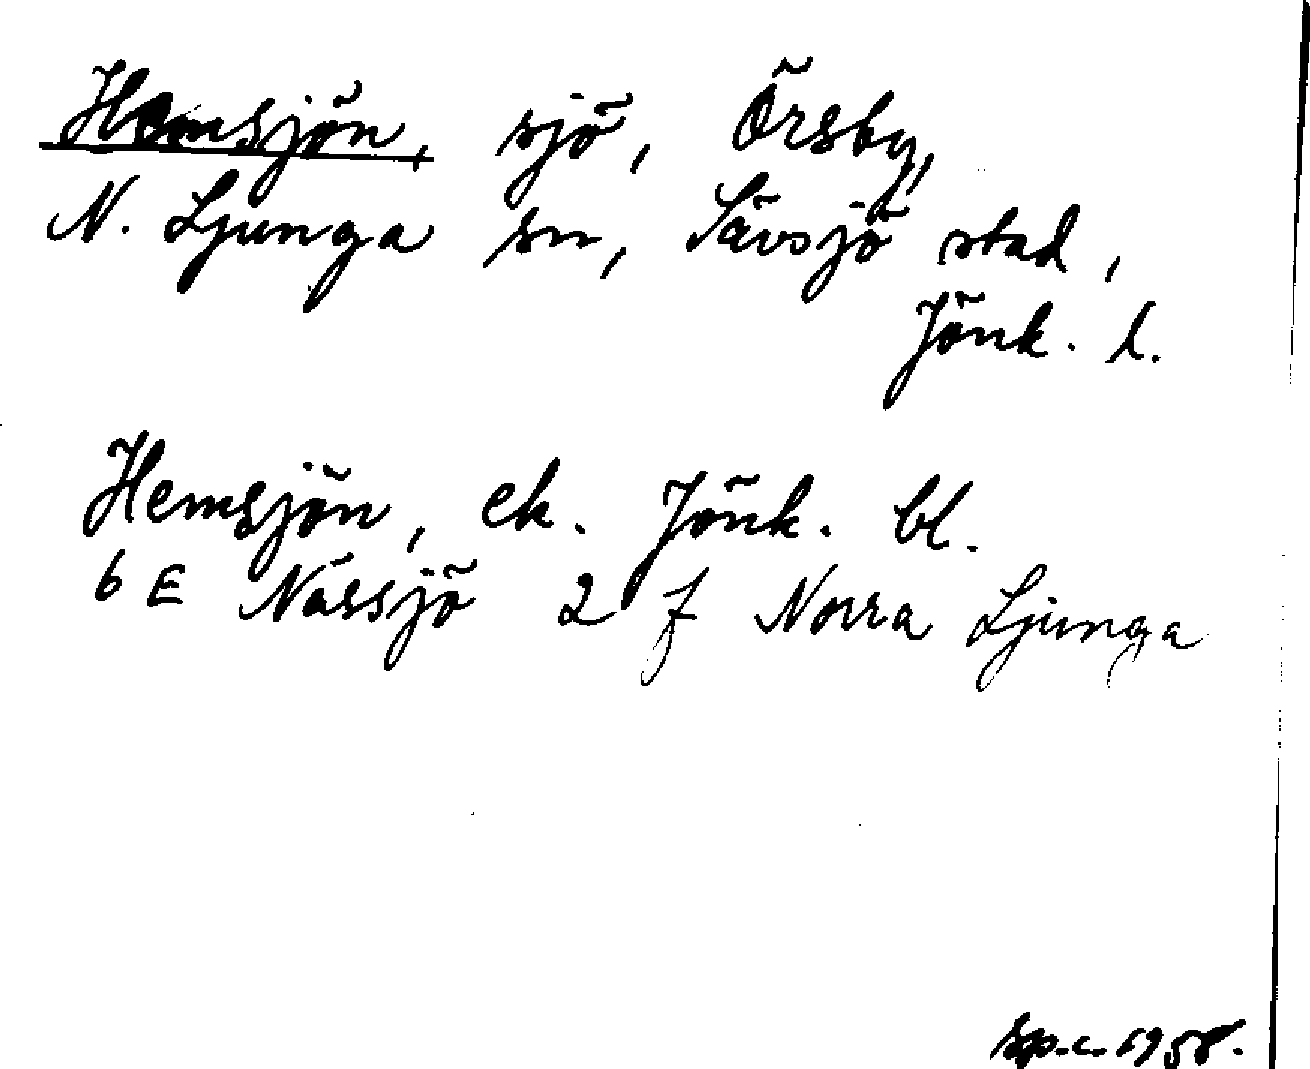 Hemsjön, sjö, Örsby,
N. Ljunga sn, Sävsjö stad,
Jönk. l.
Hemsjön, ek. Jönk. bl.
6 E Nässjö 2 f Norra Ljunga
sp.c. 1958.